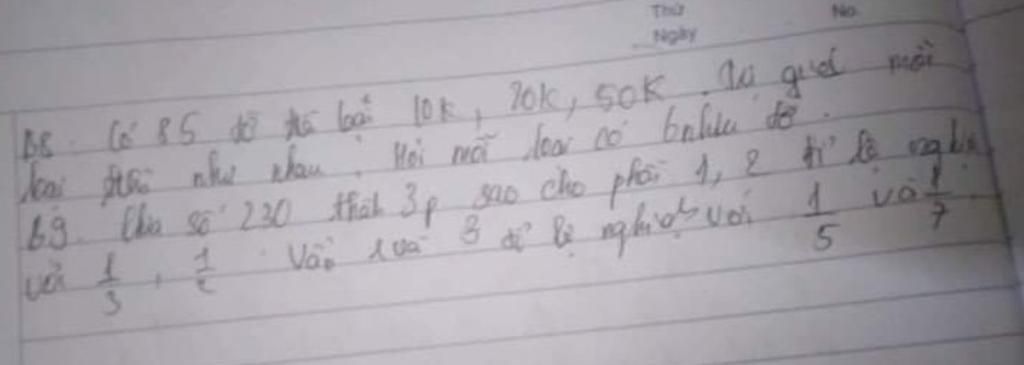 Thứ No.
Ngày
B8. Có 85 tờ 10K, 20K, 50K. giá mỗi
loại như nhau. Hỏi mỗi loại có bnhiu tờ.
B9. Chia số 230 thành 3p sao cho phần 1, 2 tỉ lệ nghịch
với 1/3, 1/2 và 1 và 3 tỉ lệ nghịch với 1/5 và 1/7.